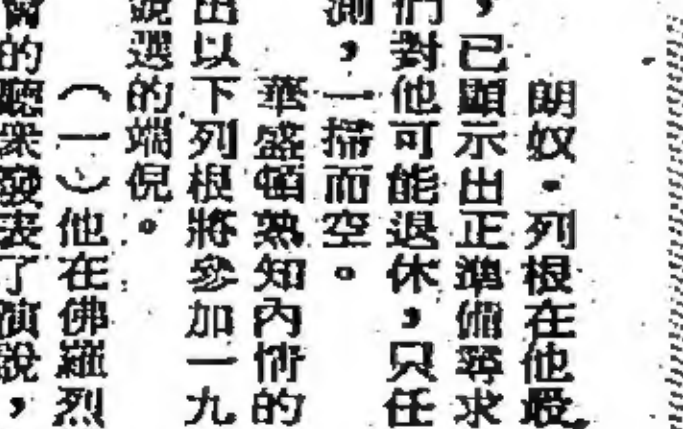 朗奴·列根在他最
，已顯示出正準備尋求
們對他可能退休，只任
測，一掃而空。
華盛頓熟知內情的
出以下列根將參加一九
競選的端倪。
（一）他在佛羅烈
會的聽衆發表了演說，